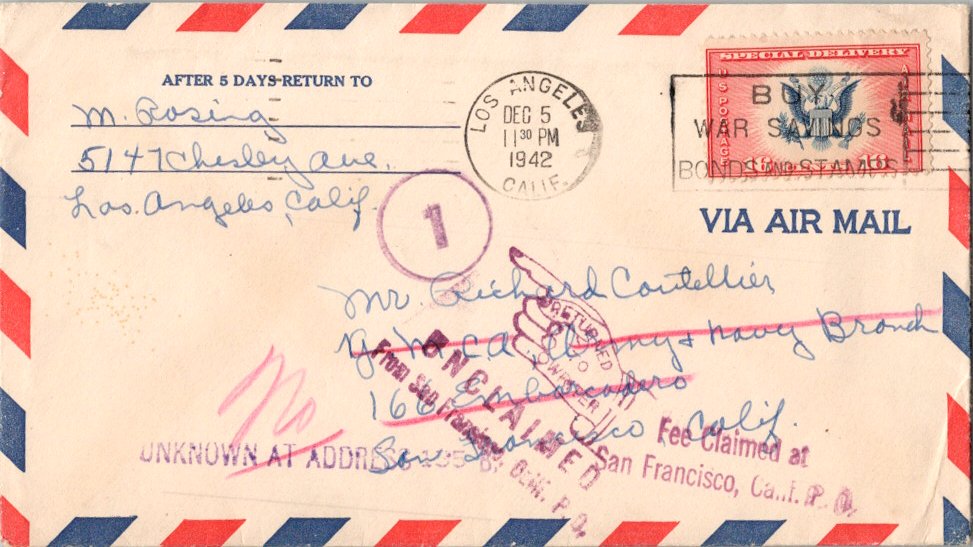 AFTER 5 DAYS RETURN TO
M. Rosing
5147 Chesley Ave.
Los. Angeles, Calif.
LOS ANGELES
DEC 5
11 30 PM
1942
CALIF.
SPECIAL DELIVERY
U.S. POSTAGE
BUY
WAR SAVINGS
BONDS AND STAMPS
VIA AIR MAIL
1
Mr. Richard Contellier
Y.M.C.A. Army & Navy Branch
166 Embarcadero
San Francisco Calif.
RETURNED
TO
WRITER
UNCLAIMED
From San Francisco
P.O.
No
UNKNOWN AT ADDRESS
Fee Claimed at
San Francisco, Calif. P.O.